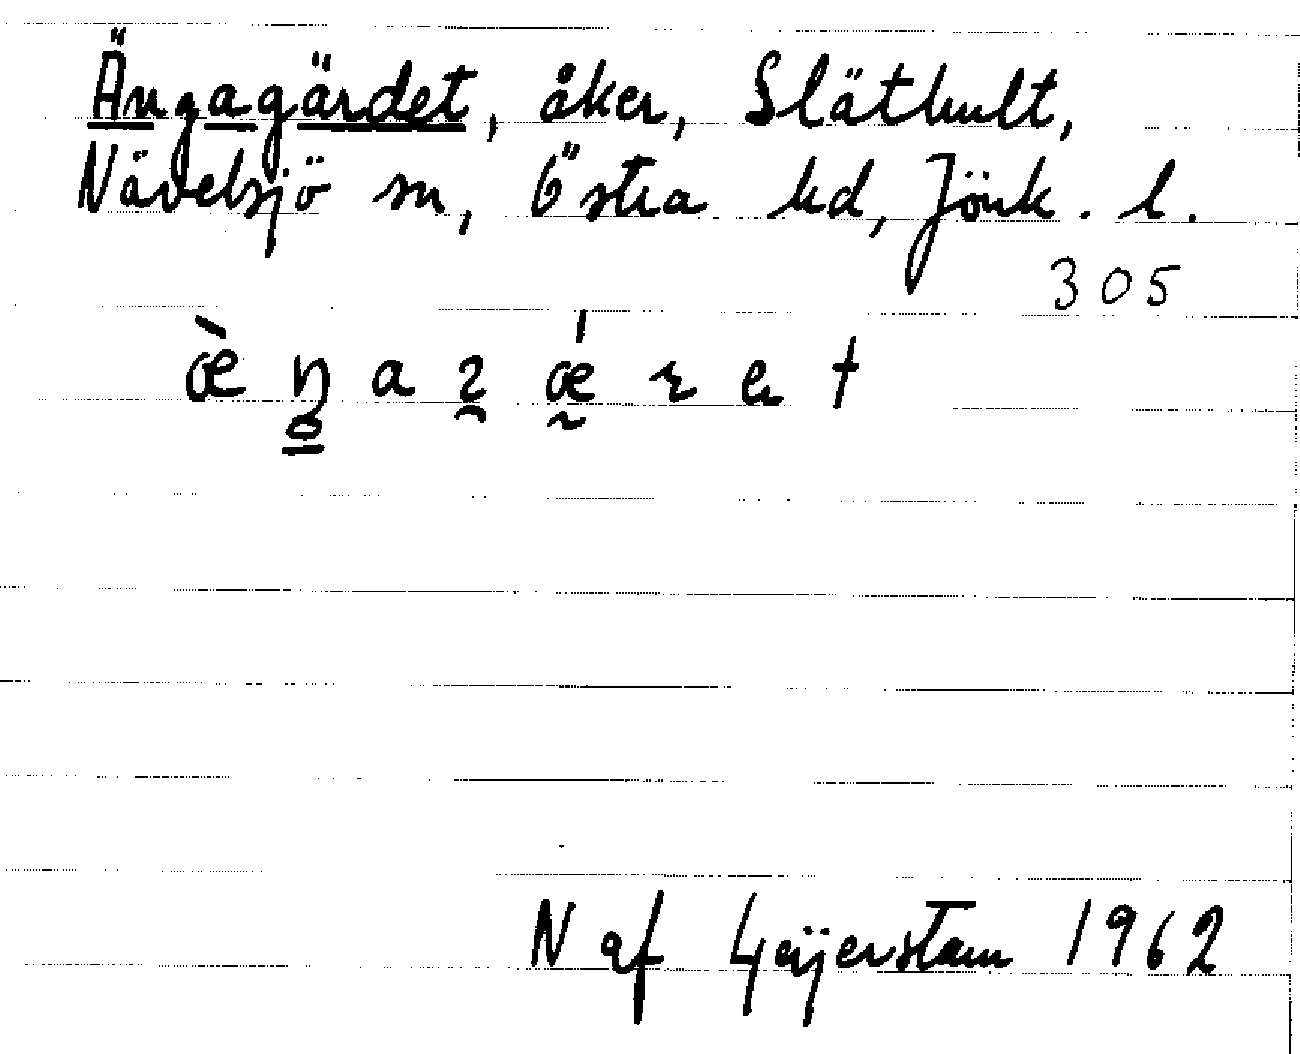 Ängagärdet, åker, Släthult,
Nävelsjö sn, Östra hd, Jönk. l.
305
N af Geijerstam 1962